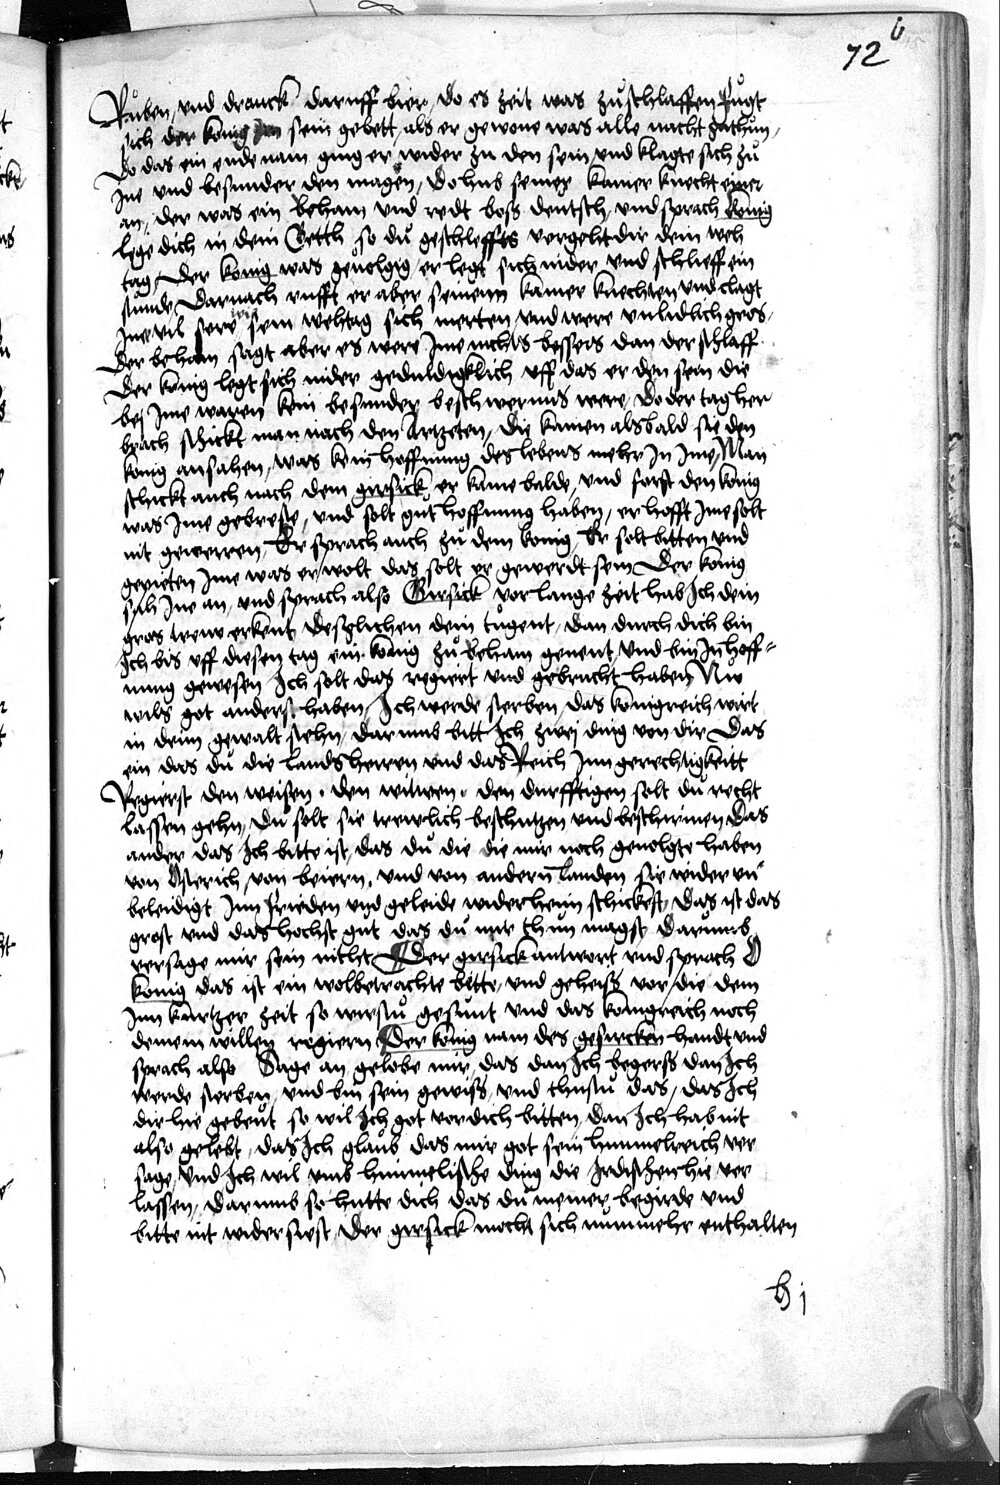 72
Růben, vnd dranck daruff bier, do es zeit was zuschlaffen fugt
sich der konig sein gebett, als er gewone was alle nacht zethun,
Do das ein ende nam ging er wider zu den sein vnd klagte sich zů
Ime vnd besunder den magen, Do hub seiner kamer knecht einer
an, der was ein beham vnd redt boss deutsch, vnd sprach konig
lege dich in dein Betth so dů geschleffts vergeht dir dein weh
tag, Der konig was geůolgig er legt sich nider vnd schlieff ein
stunde Darnach rufft er aber seinenn kamer knechten vnd clagt
Ine vil sere sein wehtag sich merten, vnd were vnlidlich gros,
Der beham sagt aber es were Ime nichts bessers dan der schlaff
Der konig legt sich nider geduldigklich vff das er den sein die
bei Ime waren kein besunder beschwernus were, Do der tag her
brach schickt man nach den Artzeten, die kamen alsbald sie den
konig ansahen, was kein hoffnung des lebens mehr In Ime, Man
schickt auch nach dem girsick, er kame balde, vnd forst den konig
was Ime gebreste, vnd solt gut hoffnung haben, er hofft Ime solt
nit gewerren, Er sprach auch zů dem konig, Er solt bitten vnd
gepieten Ime was er wolt das solt er gewerdt sein Der konig
sah Ine an, vnd sprach also Girsick vor lange zeit hab Ich dein
gros trew erkent desglichen dein tugent, dan durch dich bin
Ich bis vff diesen tag ein konig zů beham genent, vnd bin In hoff-
nung gewesen Ich solt das regiert vnd gebrucht haben, Nw
wils got anderst haben, Ich werde sterben, das konigreich wirt
in deim gewalt stehn, darumb bitt Ich zwei ding von dir Das
ein das dů die landsherren vnd das Reich Inn gerechtigkeitt
Regierst den weisen, den witwen, den durfftigen solt dů recht
lassen gehn, Dů solt sie trewlich beschutzen vnd beschirmen, Das
ander das Ich bitte ist, das dů die die mir noch geuolgte haben
von Osterich, von beiern, vnd von andern landen sie wider vn
beleidigt Inn frieden vnd geleide widerheim schickest, das ist das
grost vnd das hochst gut das dů mir thun magst, darumb
versage mir sein nicht Der girsick antwort vnd sprach O
konig das ist ein wolbetrachte bitte, vnd geheiss vor, die dem
Inn kurtzer zeit so wirstu gesunt vnd das konigreich noch
deinem willen regiern Der konig nam des gesircken handt vnd
sprach also Sage an gelobe mir, das dan Ich begerss dan Ich
werde sterben, vnd bin sein gewiss, vnd thustu das, das Ich
dir hie gebeut so wil Ich got vor dich bitten, dan Ich hab nit
also gelebt, das Ich glaub das mir got sein himmelreich ver
sage, vnd Ich wil vmb himmelische ding die Irdischen hie ver
lassen, darumb so hutte dich das dů meiner begirde vnd
bitte nit widersiest, Der girsick mocht sich nimmehr enthalten
h j